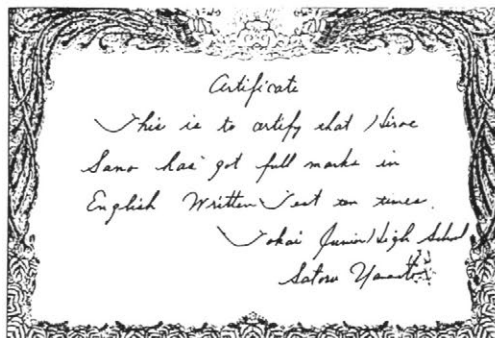 Certificate
This is to certify that Hiroe
Sano has got full marks in
English Written Test ten times.
Tokai Junior High School
Satoru